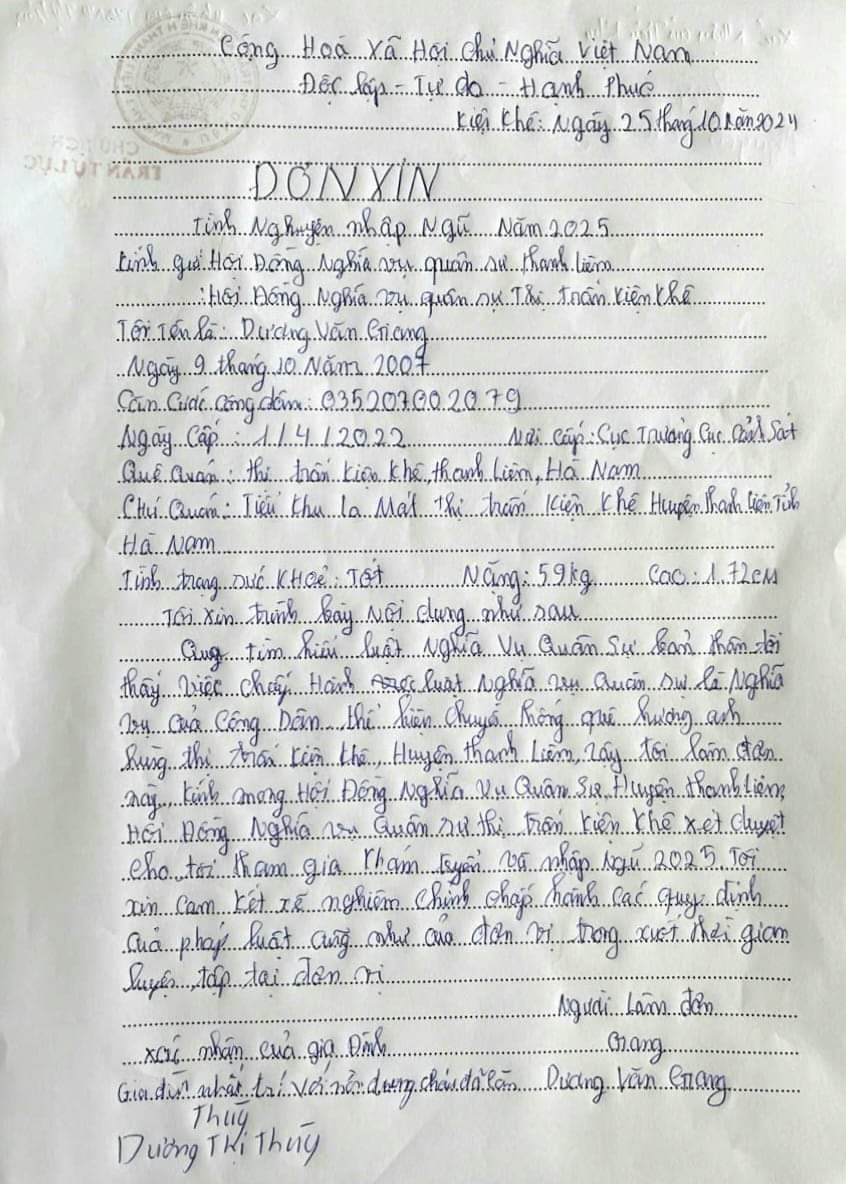 Cộng Hoá Xã Hội Chủ Nghĩa Việt Nam
Độc lập - Tự do - Hạnh Phúc
Kiện Khê: Ngày 25 tháng 10 năm 2024
ĐƠN XIN
Tình Nguyện nhập Ngũ Năm 2025
Kính gửi Hội Đồng Nghĩa vụ quân sư thanh liêm
: Hội Đồng Nghĩa vụ quân sự Thị trấn Kiện Khê
Tôi Tên là: Dương Văn Giang
Ngày 9 tháng 10 Năm 2007
Căn Cước công dân: 035207002079
Ngày Cấp: 1/4/2022 Nơi cấp: Cục Trưởng Cục Cảnh Sát
Quê Quán: thị trấn Kiện Khê, thanh Liêm, Hà Nam
Chú Quán: Tiểu Khu La Mát thị trấn Kiện Khê Huyện thanh Liêm Tỉnh
Hà Nam
Tình trạng sức Khoẻ: Tốt Nặng: 59kg Cao: 1.72cm
Tôi xin trình bày Nội dung như sau
Qua tìm hiểu luật Nghĩa Vụ Quân Sự bản thân tôi
thấy việc chấp Hành luật Nghĩa vụ Quân sự là Nghĩa
vụ của Công Dân thể hiện chuyề thống quê hương anh
hùng thị trấn Kiện Khê, Huyện thanh Liêm, nay tôi làm đơn
này, kính mong Hội Đồng Nghĩa Vụ Quân Sự Huyện thanh Liêm,
Hội Đồng Nghĩa vụ Quân sự thị trấn Kiện Khê xét duyệt
cho tôi tham gia Khám tuyển và nhập Ngũ 2025. Tôi
xin cam kết xẽ nghiêm chỉnh chấp hành các quy định
của pháp luật cũng như của đơn vị trong xuốt thời gian
luyện tập tại đơn vị
Người Làm đơn
xác nhận của gia Đình Giang
Gia đình nhất trí với nội dung cháu đã làm Dương Văn Giang
Thuỳ
Dương Thị Thuỳ